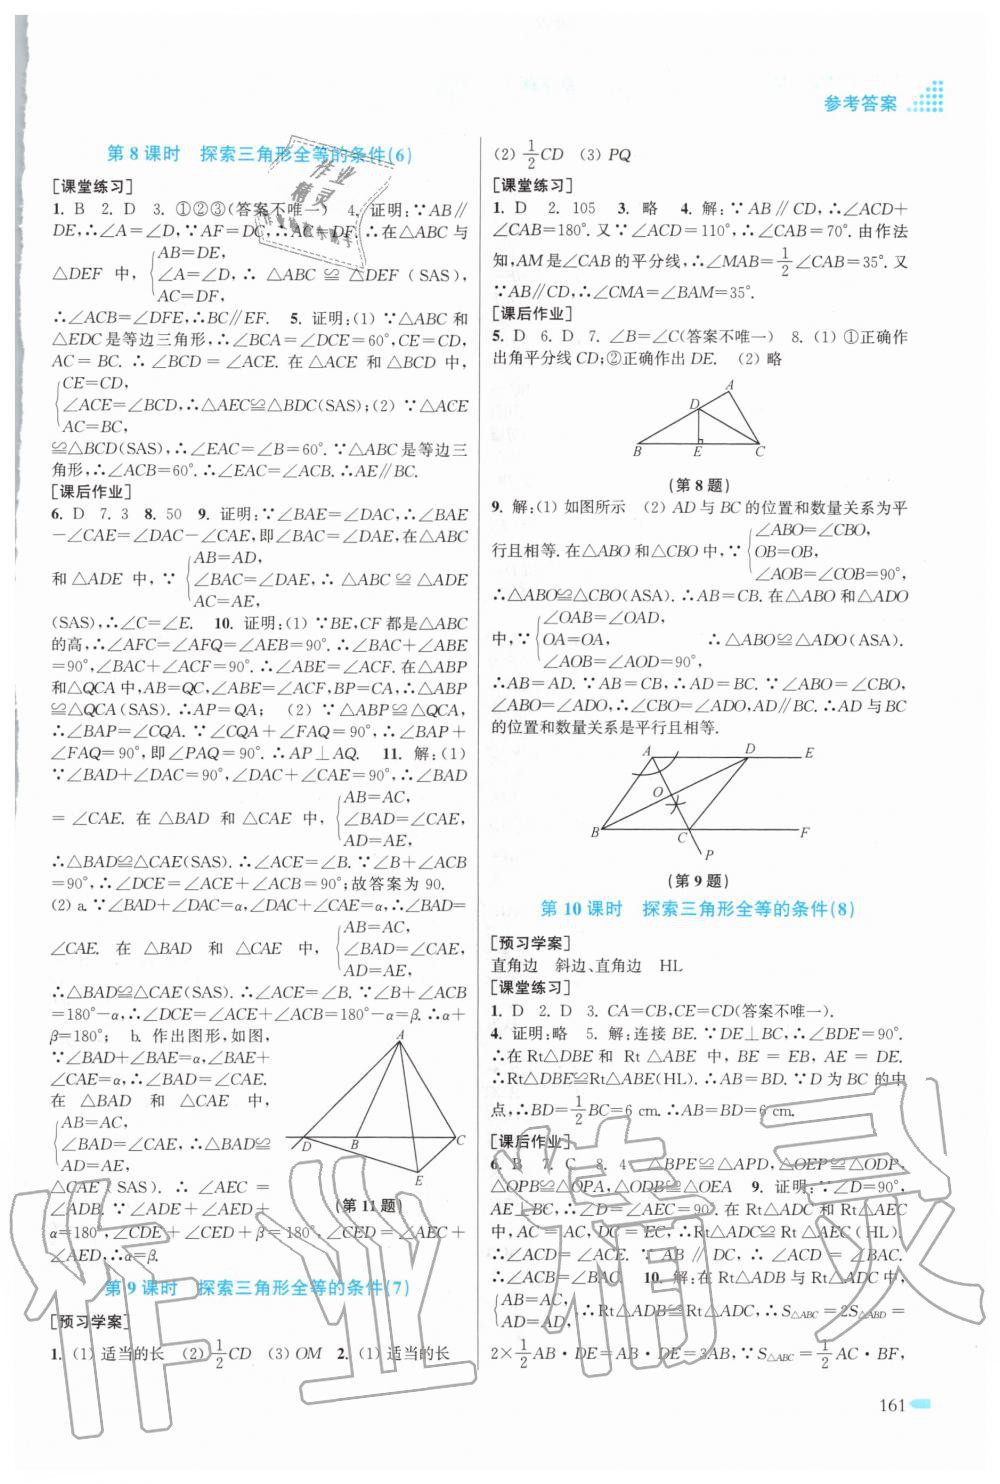 参考答案
第 8 课时 探索三角形全等的条件(6)
[课堂练习]
1. B 2. D 3. ①②③(答案不唯一) 4. 证明:∵AB∥
DE,∴∠A=∠D,∵AF=DC,∴AC=DF. ∴在△ABC 与
AB=DE,
△DEF 中, ∠A=∠D, ∴ △ABC ≌ △DEF (SAS),
AC=DF,
∴∠ACB=∠DFE,∴BC∥EF. 5. 证明:(1) ∵△ABC 和
△EDC 是等边三角形,∴∠BCA=∠DCE=60°,CE=CD,
AC = BC. ∴∠BCD =∠ACE. 在 △ACE 和 △BCD 中,
CE=CD,
∠ACE=∠BCD,∴△AEC≌△BDC(SAS);(2) ∵△ACE
AC=BC,
≌△BCD(SAS),∴∠EAC=∠B=60°. ∵△ABC 是等边三
角形,∴∠ACB=60°. ∴∠EAC=∠ACB. ∴AE∥BC.
[课后作业]
6. D 7. 3 8. 50 9. 证明:∵∠BAE=∠DAC,∴∠BAE
-∠CAE=∠DAC-∠CAE,即∠BAC=∠DAE,在△ABC
AB=AD,
和△ADE 中,∵ ∠BAC=∠DAE,∴△ABC ≌ △ADE
AC=AE,
(SAS),∴∠C=∠E. 10. 证明:(1) ∵BE,CF 都是△ABC
的高,∴∠AFC=∠AFQ=∠AEB=90°. ∴∠BAC+∠ABE
=90°,∠BAC+∠ACF=90°. ∴∠ABE=∠ACF. 在△ABP
和△QCA 中,AB=QC,∠ABE=∠ACF,BP=CA,∴△ABP
≌△QCA(SAS). ∴AP=QA; (2) ∵△ABP≌△QCA,
∴∠BAP=∠CQA. ∵∠CQA+∠FAQ=90°,∴∠BAP+
∠FAQ=90°,即∠PAQ=90°. ∴AP⊥AQ. 11. 解:(1)
∵∠BAD+∠DAC=90°,∠DAC+∠CAE=90°,∴∠BAD
AB=AC,
= ∠CAE. 在 △BAD 和 △CAE 中, ∠BAD=∠CAE,
AD=AE,
∴△BAD≌△CAE(SAS). ∴∠ACE=∠B. ∵∠B+∠ACB
=90°,∴∠DCE=∠ACE+∠ACB=90°;故答案为 90.
(2) a. ∵∠BAD+∠DAC=α,∠DAC+∠CAE=α,∴∠BAD=
AB=AC,
∠CAE. 在 △BAD 和 △CAE 中, ∠BAD=∠CAE,
AD=AE,
∴△BAD≌△CAE(SAS). ∴∠ACE=∠B. ∵∠B+∠ACB
=180°-α,∴∠DCE=∠ACE+∠ACB=180°-α=β. ∴α+
β=180°; b. 作出图形,如图,
∵∠BAD+∠BAE=α,∠BAE+
∠CAE=α,∴∠BAD=∠CAE.
在 △BAD 和 △CAE 中,
AB=AC,
∠BAD=∠CAE,∴△BAD≌
AD=AE,
△CAE (SAS). ∴ ∠AEC =
∠ADB. ∵∠ADE+∠AED+
α=180°,∠CDE+∠CED+β=180°,∠CED=∠AEC+
∠AED,∴α=β.
A
D
B
C
E
(第 11 题)
第 9 课时 探索三角形全等的条件(7)
[预习学案]
1. (1) 适当的长 (2) 1/2CD (3) OM 2. (1) 适当的长
(2) 1/2CD (3) PQ
[课堂练习]
1. D 2. 105 3. 略 4. 解:∵AB∥CD,∴∠ACD+
∠CAB=180°. 又∵∠ACD=110°,∴∠CAB=70°. 由作法
知,AM是∠CAB的平分线,∴∠MAB=1/2∠CAB=35°. 又
∵AB∥CD,∴∠CMA=∠BAM=35°.
[课后作业]
5. D 6. D 7. ∠B=∠C(答案不唯一) 8. (1) ①正确作
出角平分线 CD;②正确作出 DE. (2) 略
A
D
B
E
C
(第 8 题)
9. 解:(1) 如图所示 (2) AD 与 BC 的位置和数量关系为平
∠ABO=∠CBO,
行且相等. 在△ABO 和△CBO 中,∵ OB=OB,
∠AOB=∠COB=90°,
∴△ABO≌△CBO(ASA). ∴AB=CB. 在△ABO 和△ADO
∠OAB=∠OAD,
中,∵ OA=OA, ∴△ABO≌△ADO(ASA).
∠AOB=∠AOD=90°,
∴AB=AD. ∵AB=CB,∴AD=BC. ∵∠ABO=∠CBO,
∠ABO=∠ADO,∴∠CBO=∠ADO,AD∥BC. ∴AD 与BC
的位置和数量关系是平行且相等.
A
D
E
O
B
C
F
P
(第 9 题)
第 10 课时 探索三角形全等的条件(8)
[预习学案]
直角边 斜边、直角边 HL
[课堂练习]
1. D 2. D 3. CA=CB,CE=CD(答案不唯一).
4. 证明:略 5. 解:连接 BE. ∵DE⊥BC,∴∠BDE=90°.
∴在Rt△DBE 和 Rt △ABE 中,BE = EB, AE = DE.
∴Rt△DBE≌Rt△ABE(HL). ∴AB=BD. ∵D 为 BC 的中
点,∴BD=1/2BC=6 cm. ∴AB=BD=6 cm.
[课后作业]
6. B 7. C 8. 4 △BPE≌△APD, △OEP≌△ODP,
△OPB≌△OPA,△ODB≌△OEA 9. 证明:∵∠D=90°,
AE⊥BC,∴∠D=∠AEC=90°. 在Rt△ADC 和Rt△AEC
中,AC = AC, DC = EC, ∴Rt△ADC≌Rt△AEC (HL).
∴∠ACD =∠ACE. ∵ AB ∥ DC, ∴ ∠ACD = ∠BAC.
∴∠ACE=∠BAC. 10. 解:在Rt△ADB 与Rt△ADC 中,
AB=AC,
∴Rt△ADB≌Rt△ADC,∴S△ABC=2S△ABD=
AD=AD,
2×1/2AB·DE=AB·DE=3AB,∵S△ABC=1/2AC·BF,
161
作业精灵